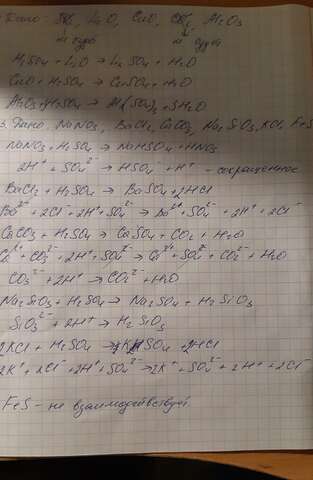 Дано Li₂O, CuO, Al₂O₃
H₂SO₄ + Li₂O → Li₂SO₄ + H₂O
CuO + H₂SO₄ → CuSO₄ + H₂O
Al₂O₃ + H₂SO₄ → Al₂(SO₄)₃ + 3H₂O
3. Дано, NaNO₃, BaCl₂, CaCO₃, Na₂SiO₃, KCl, FeS
NaNO₃ + H₂SO₄ → NaHSO₄ + HNO₃
2H⁺ + SO₄²⁻ → HSO₄⁻ + H⁺ - сокращенное
BaCl₂ + H₂SO₄ → BaSO₄ + 2HCl
Ba²⁺ + 2Cl⁻ + 2H⁺ + SO₄²⁻ → Ba²⁺ + SO₄²⁻ + 2H⁺ + 2Cl⁻
CaCO₃ + H₂SO₄ → CaSO₄ + CO₂ + H₂O
Ca²⁺ + CO₃²⁻ + 2H⁺ + SO₄²⁻ → Ca²⁺ + SO₄²⁻ + CO₂²⁻ + H₂O
CO₃²⁻ + 2H⁺ → CO₂²⁻ + H₂O
Na₂SiO₃ + H₂SO₄ → Na₂SO₄ + H₂SiO₃
SiO₃²⁻ + 2H⁺ → H₂SiO₃
2KCl + H₂SO₄ → SO₄ + 2HCl
2K⁺ + 2Cl⁻ + 2H⁺ + SO₄²⁻ → 2K⁺ + SO₄²⁻ + 2H⁺ + 2Cl⁻
FeS - не взаимодействует